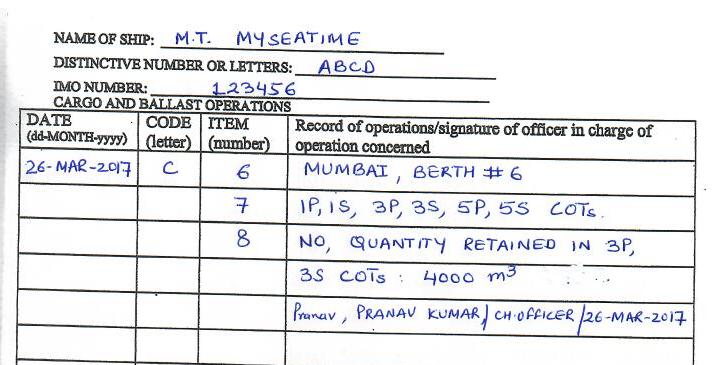 NAME OF SHIP: M.T. MYSEATIME
DISTINCTIVE NUMBER OR LETTERS: ABCD
IMO NUMBER: 123456
CARGO AND BALLAST OPERATIONS
DATE (dd-MONTH-yyyy) CODE (letter) ITEM (number) Record of operations/signature of officer in charge of operation concerned
26-MAR-2017 C 6 MUMBAI, BERTH # 6
7 1P, 1S, 3P, 3S, 5P, 5S COTs.
8 NO, QUANTITY RETAINED IN 3P,
3S COTs : 4000 m³
Pranav, PRANAV KUMAR/ CH.OFFICER/26-MAR-2017